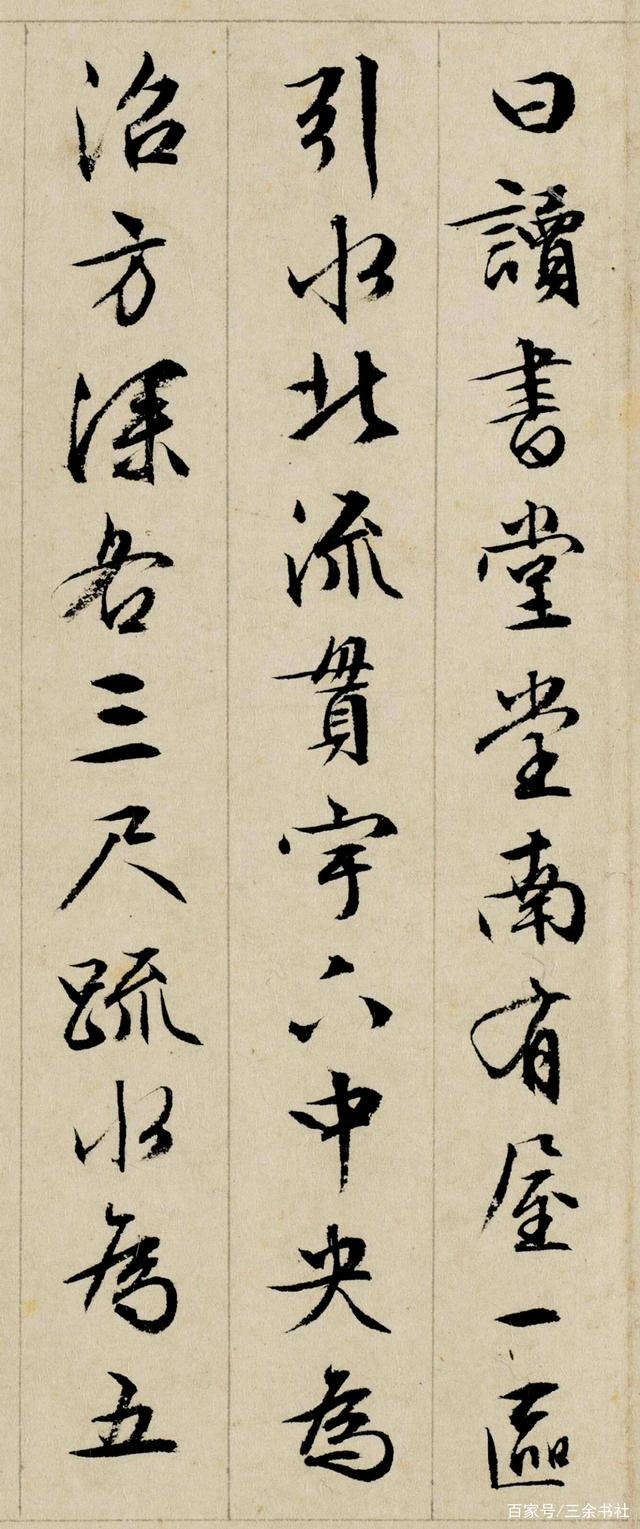 曰讀書堂堂南有屋一區
引水北流貫宇下中央為
沼方深各三尺疏水為五
百家号/三余书社